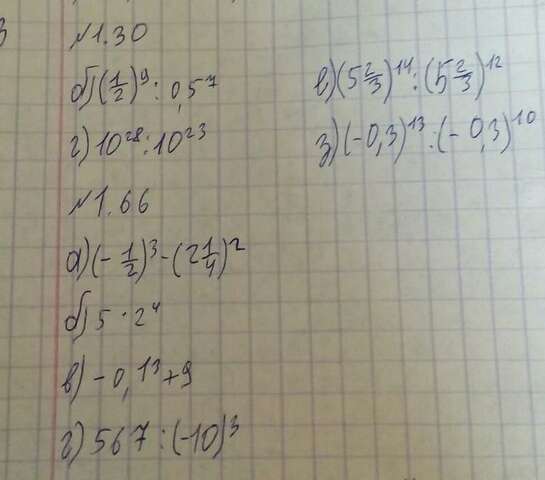 №1.30
б) (1/2)⁹ : 0,5⁷
г) 10²⁸ : 10²³
е) (5 2/3)¹⁴ : (5 2/3)¹²
з) (-0,3)¹³ : (-0,3)¹⁰
№1.66
а) (-1/2)³ - (2 1/4)²
б) 5 · 2⁴
в) -0,1³ + 9
г) 567 : (-10)³